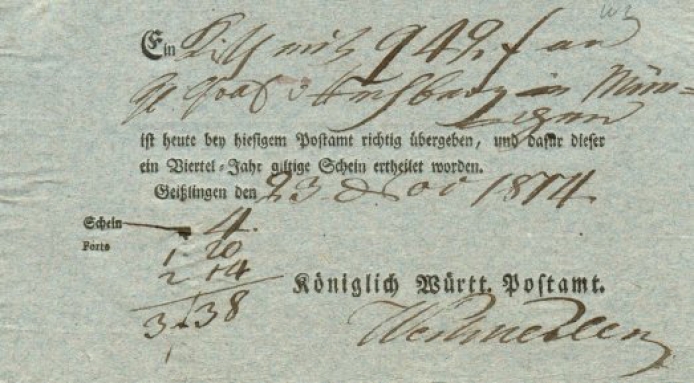 Ein mit 949 f an
in Mün-
ist heute bey hiesigem Postamt richtig übergeben, und dafür dieser
ein Viertel-Jahr giltige Schein ertheilet worden.
Geißlingen den 23 Nov 1814
Schein 4.
Porto 1 20
2 14
3 38
Königlich Württ. Postamt.